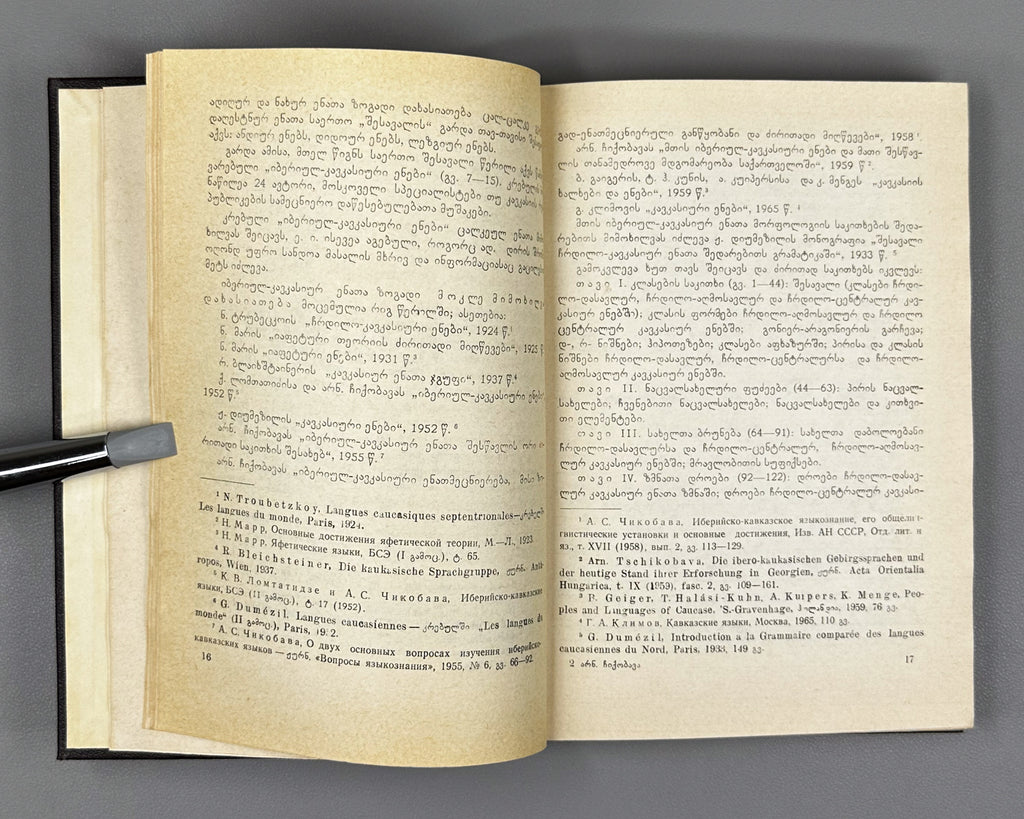 ადიღურ და ნახურ ენათა ზოგადი დახასიათება ცალ-ცალკე
დაღესტნურ ენათა საერთო „შესავალის“ გარდა თავ-თავისი
აქვს: ანდიურ ენებს, დიდოურ ენებს, ლეზგიურ ენებს.
გარდა ამისა, მთელ წიგნს საერთო შესავალი წერილი აქვს
ვარებული „იბერიულ-კავკასიური ენები“ (გვ. 7—15). კრებულში
ნაწილეა 24 ავტორი, მოსკოველი სპეციალისტები თუ კავკასიის
პუბლიკების სამეცნიერო დაწესებულებათა მუშაკები.
კრებული „იბერიულ-კავკასიური ენები“ ცალკეულ ენათა
ხილვას შეიცავს, ე. ი. ისევეა აგებული, როგორც ად. დირის
ოღონდ უფრო სანდოა მასალის მხრივ და ინფორმაციასაც
მეტს იძლევა.
იბერიულ-კავკასიურ ენათა ზოგადი მოკლე მიმოხილვა
დახასიათება მოცემულია რიგ წერილში; ასეთებია:
ნ. ტრუბეცკოის „ჩრდილო-კავკასიური ენები“, 1924 წ.¹
ნ. მარის „იაფეტური თეორიის ძირითადი მიღწევები“, 1925 წ.
ნ. მარის „იაფეტური ენები“, 1931 წ.³
რ. ბლაიხშტაინერის „კავკასიურ ენათა ჯგუფი“, 1937 წ.⁴
ქ. ლომთათიძისა და არნ. ჩიქობავას „იბერიულ-კავკასიური ენები“
1952 წ.⁵
ჟ. დიუმეზილის „კავკასიური ენები“, 1952 წ. ⁶
არნ. ჩიქობავას „იბერიულ-კავკასიურ ენათა შესწავლის ორი
რითადი საკითხის შესახებ“, 1955 წ.⁷
არნ. ჩიქობავას „იბერიულ-კავკასიური ენათმეცნიერება, მისი
¹ N. Troubetzkoy, Langues caucasiques septentrionales—კრებულში
Les langues du monde, Paris, 1924.
² Н. Марр, Основные достижения яфетической теории, М.—Л., 1923.
³ Н. Марр. Яфетические языки, БСЭ (I გამოც.), ტ. 65.
⁴ R. Bleichsteiner, Die kaukasische Sprachgruppe, ჟურნ. Anth-
ropos, Wien, 1937.
⁵ К. В. Ломтатидзе и А. С. Чикобава, Иберийско-кавказские
языки, БСЭ (II გამოც.), ტ. 17 (1952).
⁶ G. Dumézil, Langues caucasiennes — კრებულში „Les langues du
monde“ (II გამოც.), Paris, 1952.
⁷ А. С. Чикобава, О двух основных вопросах изучения иберийско-
кавказских языков — ჟურნ. «Вопросы языкознания», 1955, № 6, გვ. 66—92.
16
გად-ენათმეცნიერული განწყობანი და ძირითადი მიღწევები“, 1958 ¹.
არნ. ჩიქობავას „მთის იბერიულ-კავკასიური ენები და მათი შესწავ-
ლის თანამედროვე მდგომარეობა საქართველოში“, 1959 წ ².
ბ. გაიგერის, ტ. ჰ. კუნის, ა. კუიპერსისა და კ. მენგეს „კავკასიის
ხალხები და ენები“, 1959 წ.³
გ. კლიმოვის „კავკასიური ენები“, 1965 წ. ⁴
მთის იბერიულ-კავკასიურ ენათა მორფოლოგიის საკითხების შედა-
რებითს მიმოხილვას იძლევა ჟ. დიუმეზილის მონოგრაფია „შესავალი
ჩრდილო-კავკასიურ ენათა შედარებითს გრამატიკაში“, 1933 წ. ⁵
გამოკვლევა ხუთ თავს შეიცავს და ძირითად საკითხებს იკვლევს:
თავი I. კლასების საკითხი (გვ. 1—44): შესავალი (კლასები ჩრდი-
ლო-დასავლურ, ჩრდილო-აღმოსავლურ და ჩრდილო-ცენტრალურ კავ-
კასიურ ენებში); კლასის ფორმები ჩრდილო-აღმოსავლურ და ჩრდილო
ცენტრალურ კავკასიურ ენებში; გონიერ-არაგონიერის გარჩევა;
დ-, რ- ნიშნები; ჰიპოთეზები; კლასები აფხაზურში; პირისა და კლასის
ნიშნები ჩრდილო-დასავლურ, ჩრდილო-ცენტრალურსა და ჩრდილო-
აღმოსავლურ კავკასიურ ენებში.
თავი II. ნაცვალსახელური ფუძეები (44—63): პირის ნაცვალ-
სახელები; ჩვენებითი ნაცვალსახელები; ნაცვალსახელები და კითხვი-
თი ელემენტები.
თავი III. სახელთა ბრუნება (64—91): სახელთა დაბოლოებანი
ჩრდილო-დასავლურსა და ჩრდილო-ცენტრალურ, ჩრდილო-აღმოსავ-
ლურ კავკასიურ ენებში; მრავლობითის სუფიქსები.
თავი IV. ზმნათა დროები (92—122): დროები ჩრდილო-დასავ-
ლურ კავკასიურ ენათა ზმნაში; დროები ჩრდილო-ცენტრალურ კავკასი-
¹ А. С. Чикобава, Иберийско-кавказское языкознание, его общели-
гвистические установки и основные достижения, Изв. АН СССР, Отд. лит. и
яз., т. XVII (1958), вып. 2, გვ. 113—129.
² Arn. Tschikobava, Die ibero-kaukasischen Gebirgssprachen und
der heutige Stand ihrer Erforschung in Georgien, ჟურნ. Acta Orientalia
Hungarica, t. IX (1959), fasc. 2, გვ. 109—161.
³ B. Geiger, T. Halási-Kuhn, A. Kuipers, K. Menge, Peo-
ples and Languages of Caucase, 'S.-Gravenhage, ჰოლანდია, 1959, 76 გვ.
⁴ Г. А. Климов, Кавказские языки, Москва, 1965, 110 გვ.
⁵ G. Dumézil, Introduction a la Grammaire comparée des langues
caucasiennes du Nord, Paris, 1933, 149 გვ.
2 არნ. ჩიქობავა
17